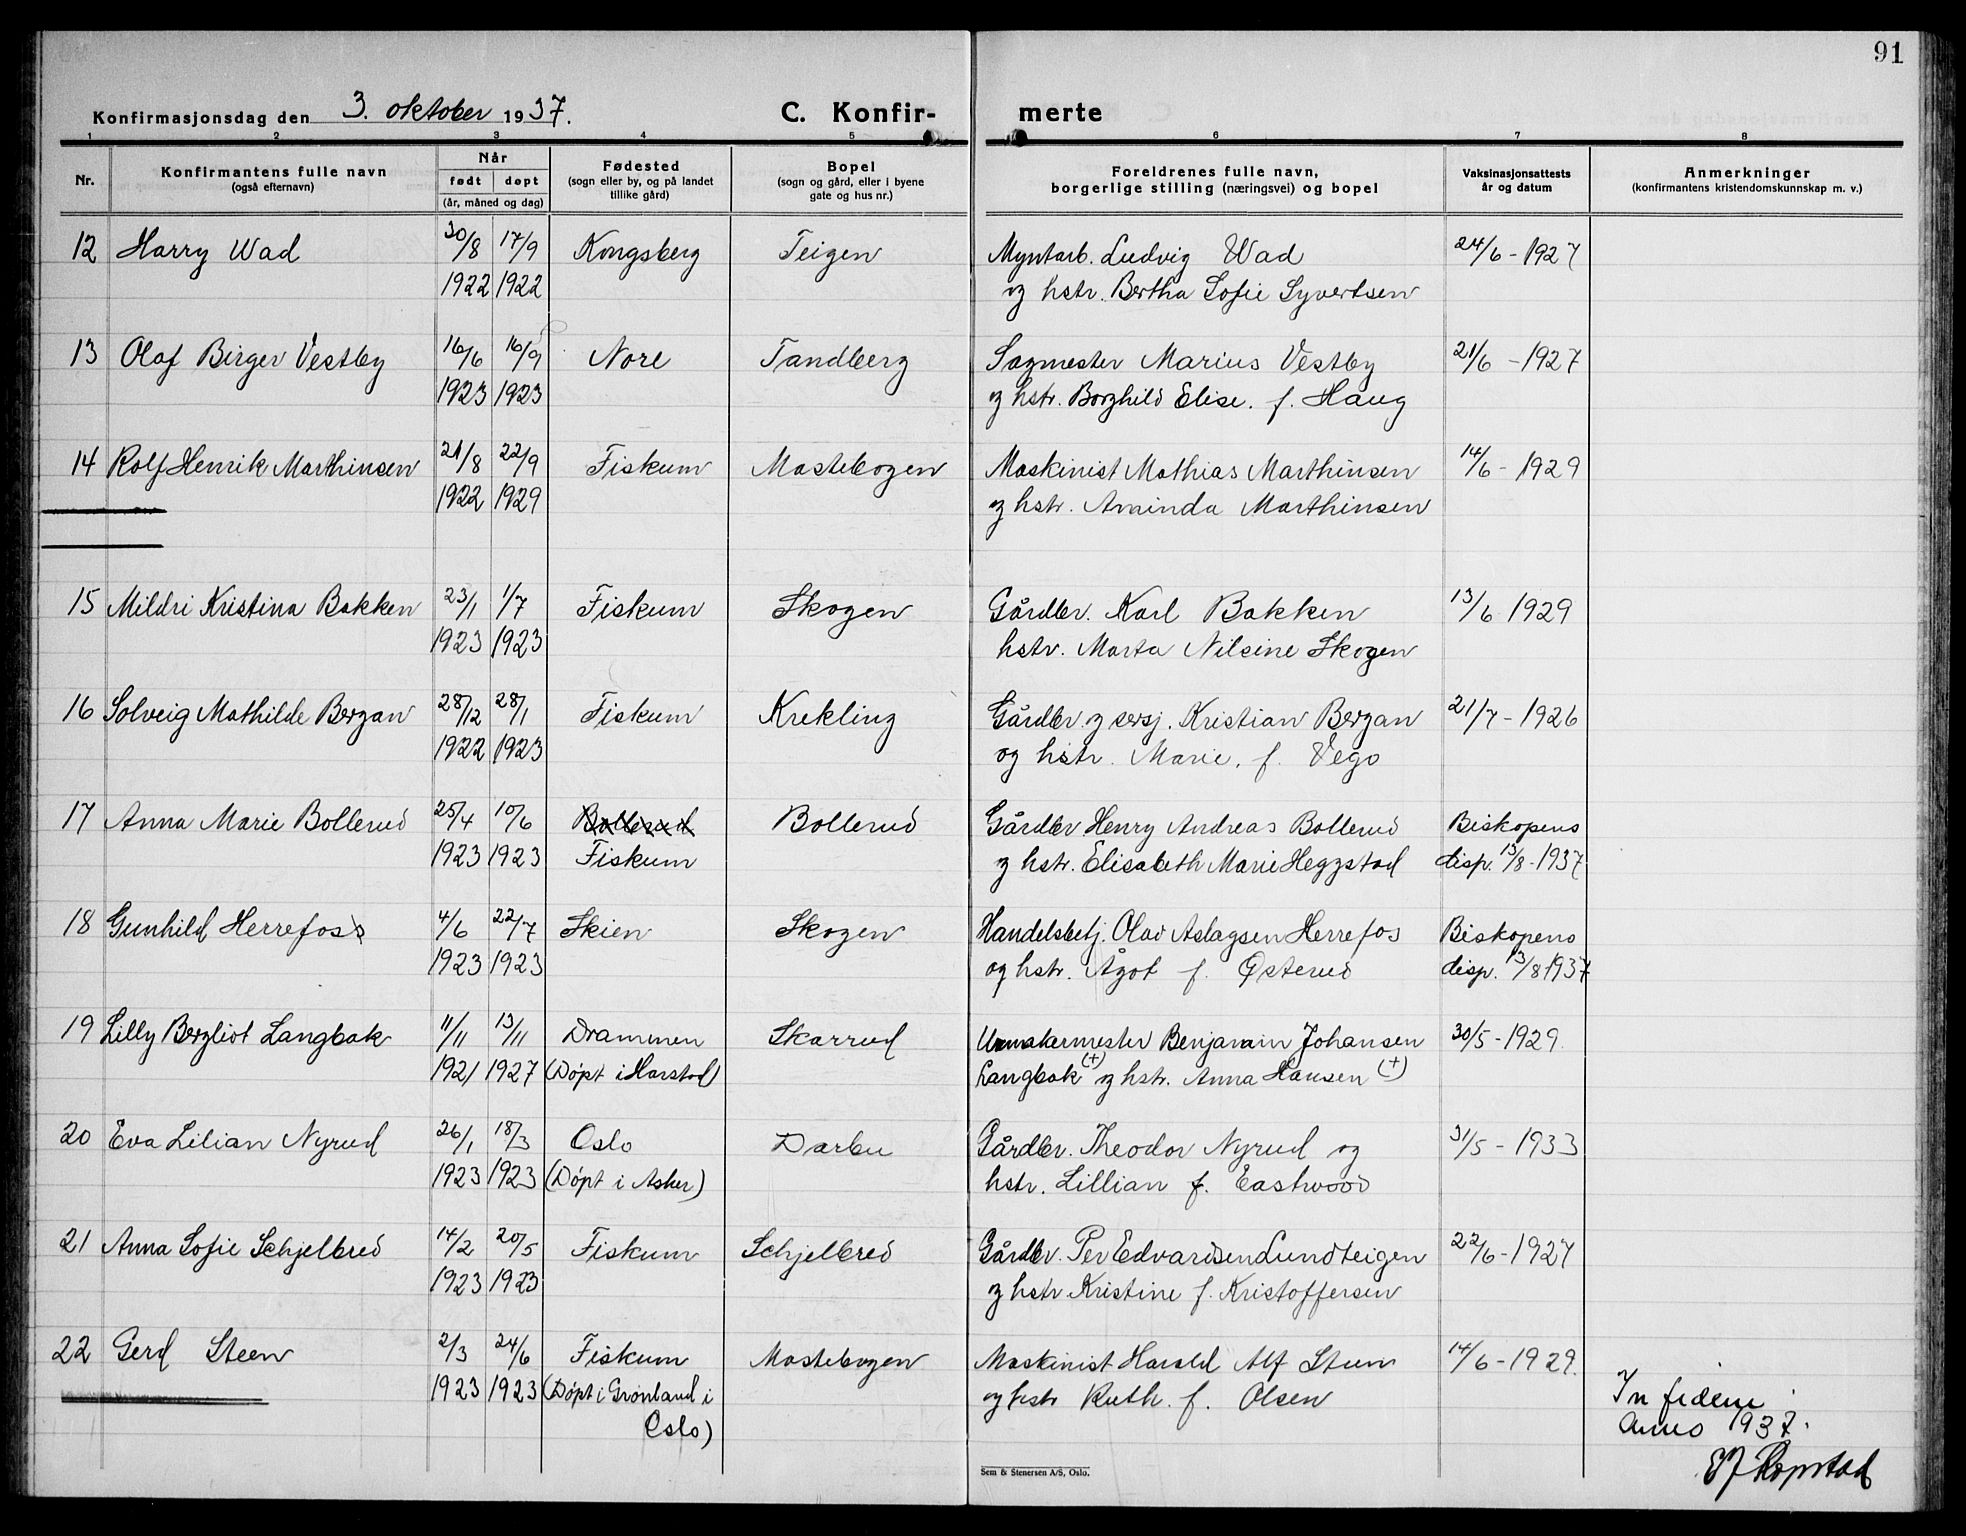 91
Konfirmasjonsdag den 3. oktober 1937.
C. Konfir- merte
1 2 3 4 5 6 7 8
Nr.
Konfirmantens fulle navn
(også efternavn)
Når
født døpt
(år, måned og dag)
Fødested
(sogn eller by, og på landet
tillike gård)
Bopel
(sogn og gård, eller i byene
gate og hus nr.)
Foreldrenes fulle navn,
borgerlige stilling (næringsvei) og bopel
Vaksinasjonsattests
år og datum
Anmerkninger
(konfirmantens kristendomskunnskap m. v.)
12 Harry Wad 30/8 17/9 Kongsberg Teigen Myntarb. Ludvig Wad 24/6 - 1927
1922 1922 og hstr. Bertha Sofie Syvertsen
13 Olaf Birger Vestby 16/6 16/9 Nore Tandberg Sagmester Marius Vestby 21/6 - 1927
1923 1923 og hstr. Borghild Elise. f. Haug
14 Rolf Henrik Marthinsen 21/8 22/9 Fiskum Mastebogen Maskinist Mathias Marthinsen 14/6 - 1929
1922 1929 og hstr. Arainda Marthinsen
15 Mildri Kristina Bakken 23/1 1/7 Fiskum Skogen Gårdbr. Karl Bakken 13/6 1929
1923 1923 hstr. Marta Nilsine Skogen
16 Solveig Mathilde Bergan 28/12 28/1 Fiskum Krekling Gårdbr. og sersj. Kristian Bergan 21/7 - 1926
1922 1923 og hstr. Marie. f. Vego
17 Anna Marie Bollerud 25/4 10/6 Bollerud Bollerud Gårdbr. Henry Andreas Bollerud Biskopens
1923 1923 Fiskum og hstr. Elisabeth Marie Heggstad disp. 13/8 - 1937
18 Gunhild Herrefoss 4/6 22/7 Skien Skogen Handelsbetj. Olav Aslagsen Herrefos Biskopens
1923 1923 og hstr. Ågot f. Østerud disp. 13/8 1937
19 Lilly Bergliot Langbak 11/11 13/11 Drammen Skarrud Urmakermester Benjamin Johansen 30/5 - 1929.
1921 1927 (Døpt i Harstad) Langbak (+) og hstr. Anna Hansen (+)
20 Eva Lilian Nyrud 26/1 18/3 Oslo Darbu Gårdbr. Theodor Nyrud og 31/5 - 1933
1923 1923 (Døpt i Asker) hstr. Lillian f. Eastwood
21 Anna Sofie Schjelbred 14/2 20/5 Fiskum Schjelbred Gårdbr. Per Edvardsen Lundteigen 22/6 - 1927
1923 1923 og hstr. Kristine f. Kristoffersen
22 Gerd Steen 2/3 24/6 Fiskum Mastebogen Maskinist Harald Alf Steen 14/6 - 1929.
1923 1923 (Døpt i Grønland i og hstr Ruth. f. Olsen
Oslo)
In fidem
Anno 1937.
Sem & Stenersen A/S, Oslo.